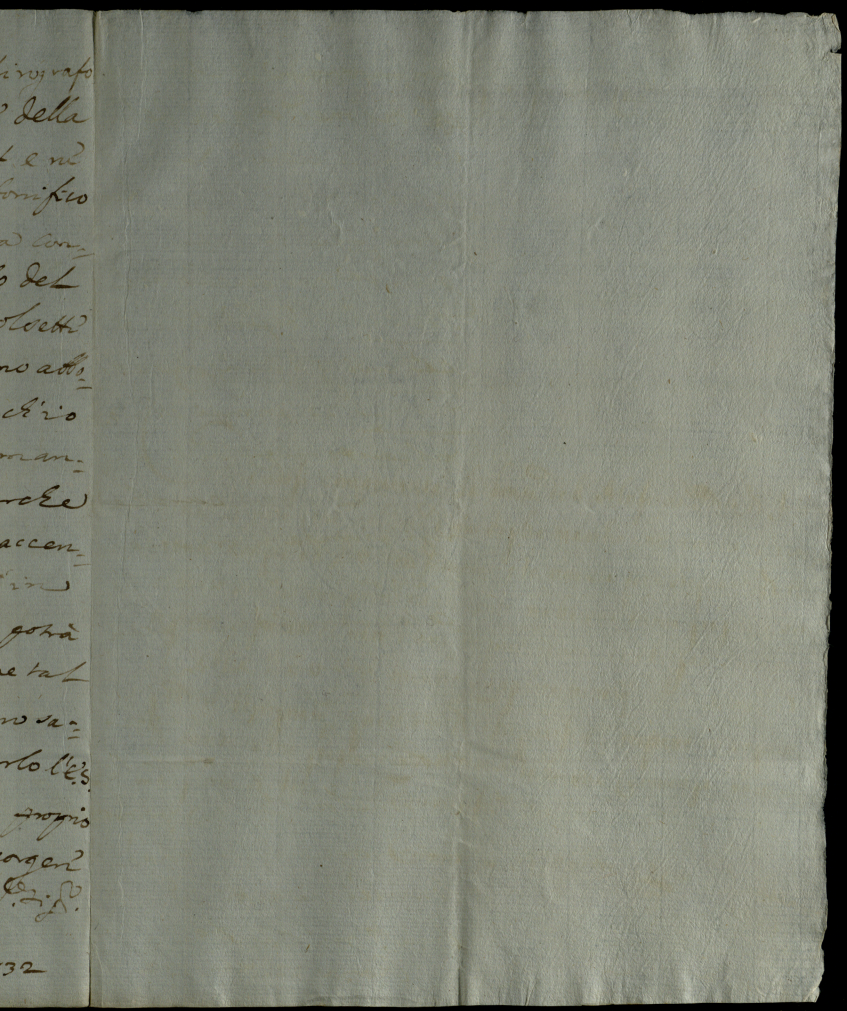 irografo
della
t e ne
onifico
a con=
o del
olsetti
no atto=
ch'io
man=
rche
accen=
in
potrà
e tal
no sa=
rlo l'E.S.
proprio
orgeri
32